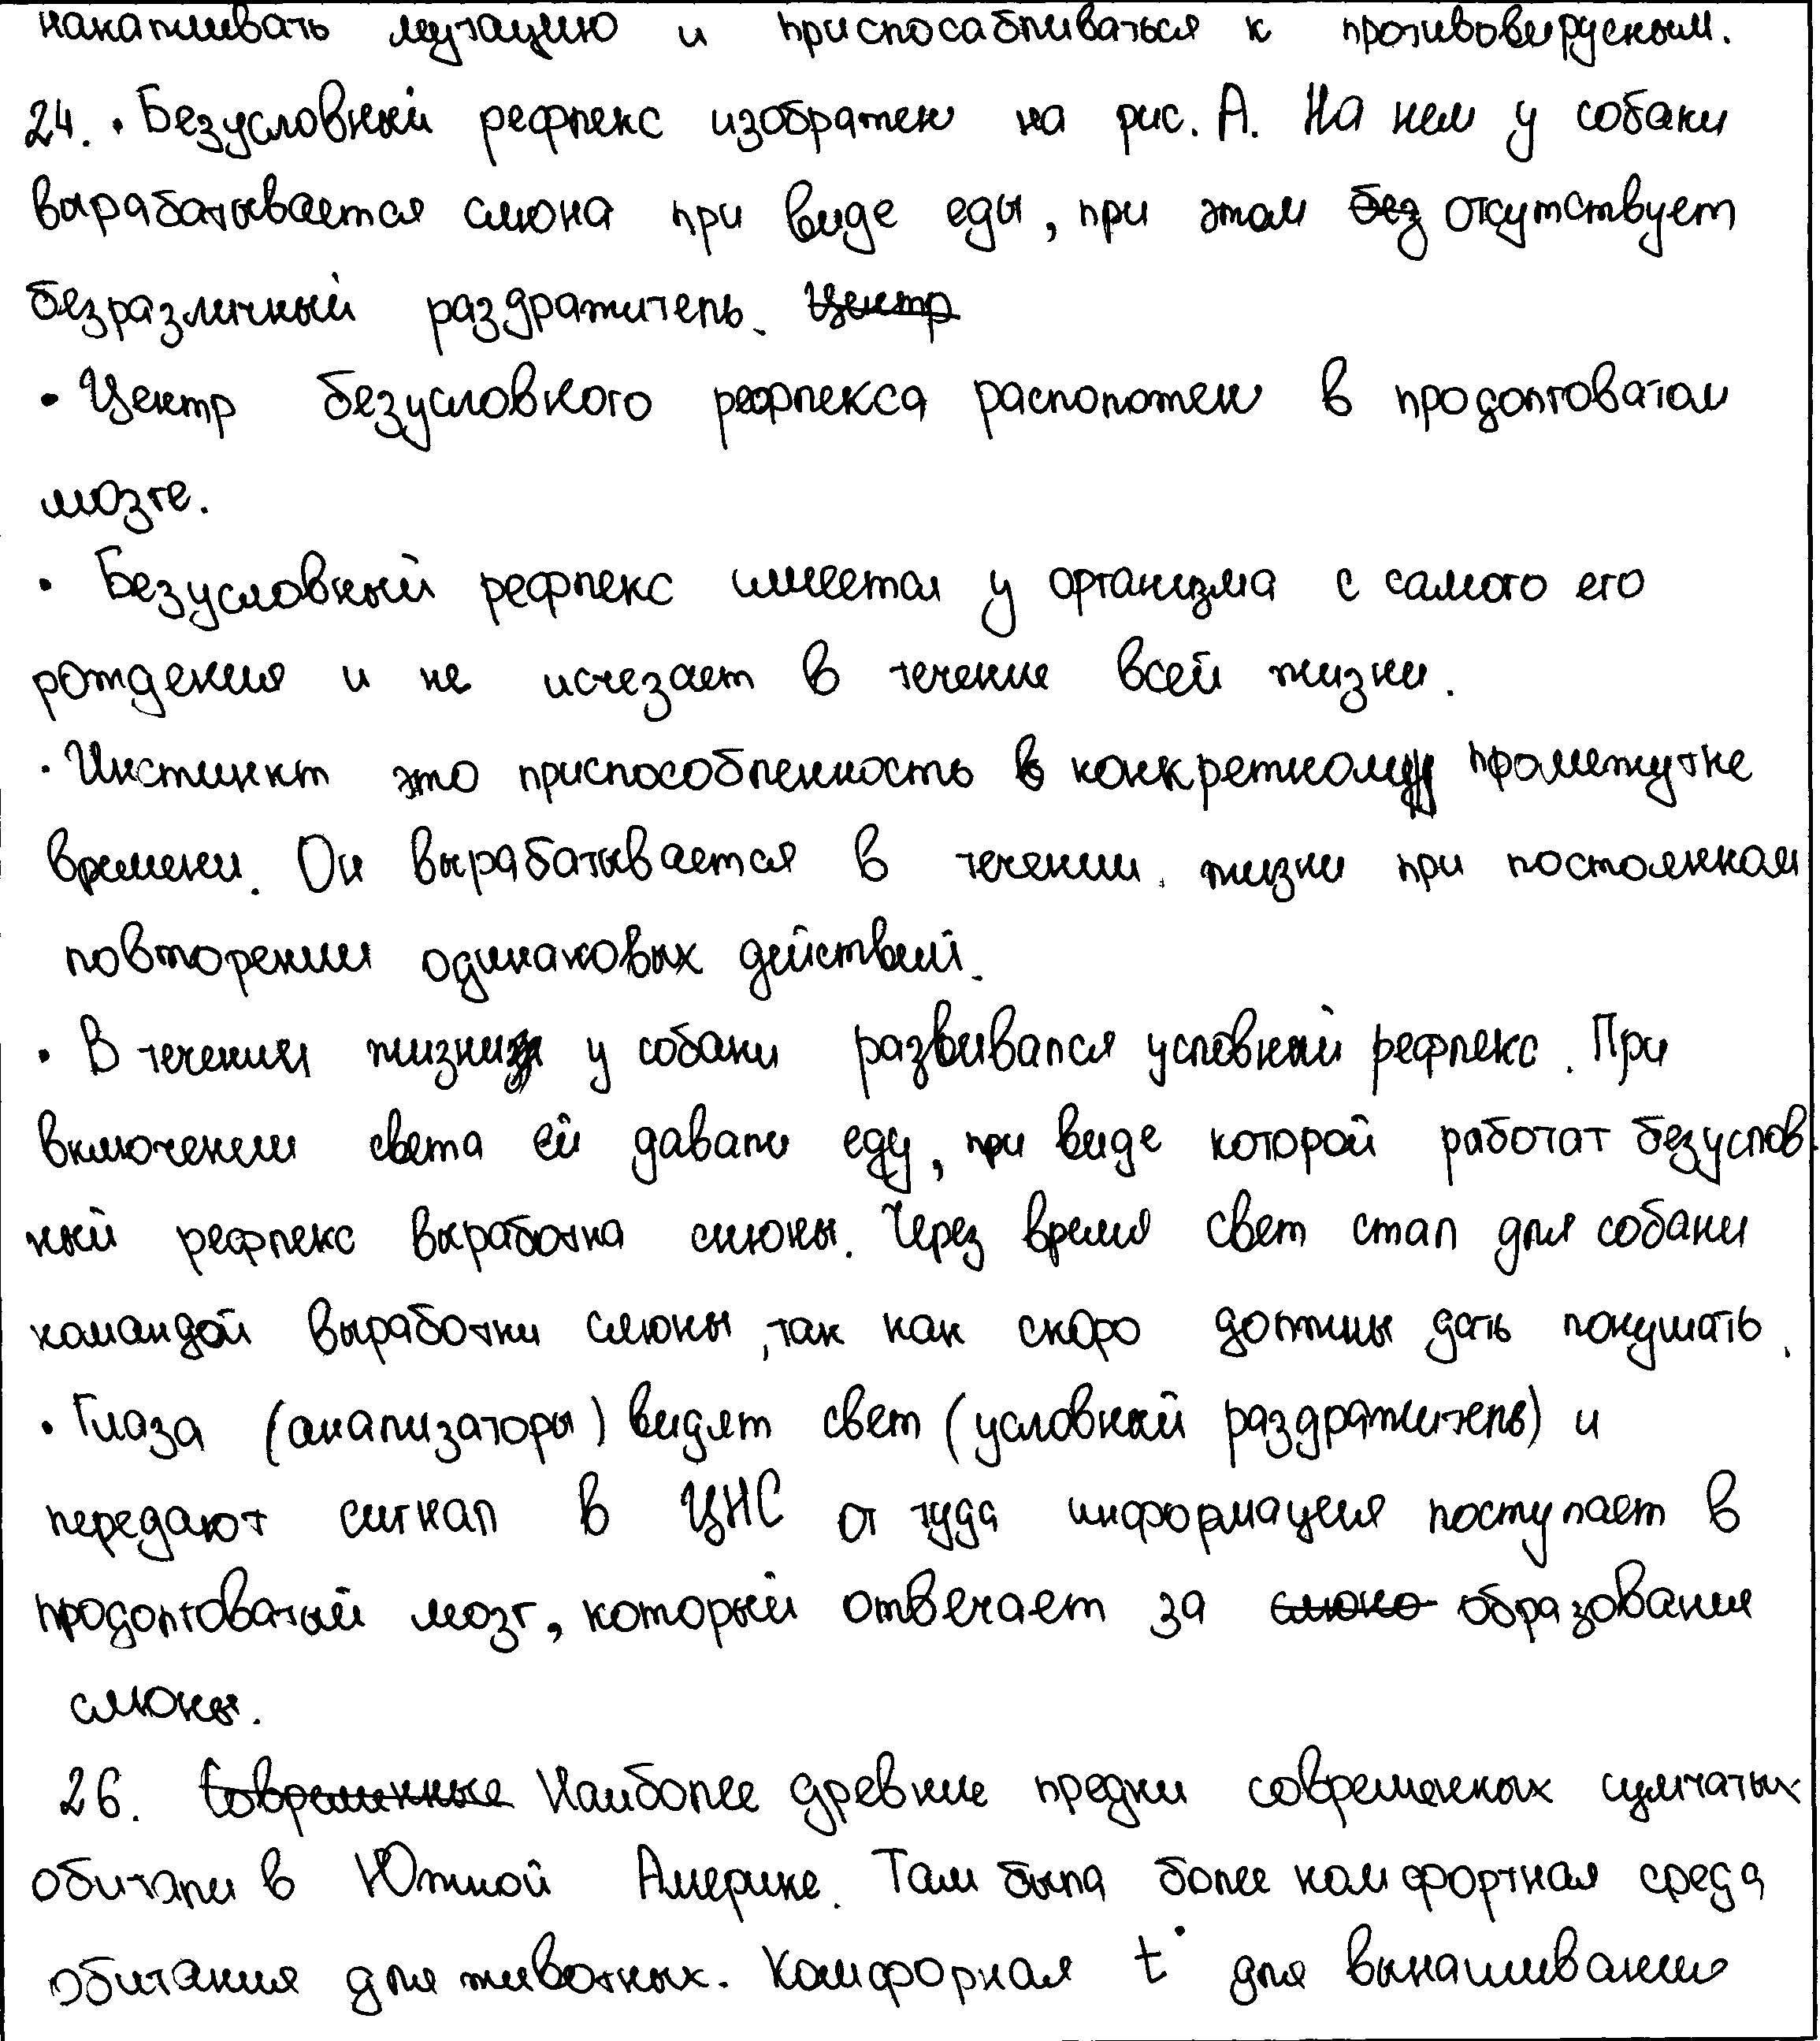 накапливать мутацию и приспосабливаться к противовирусным.
24. • Безусловный рефлекс изображен на рис. А. На нем у собаки
вырабатывается слюна при виде еды, при этом без отсутствует
безразличный раздражитель. Центр
• Центр безусловного рефлекса расположен в продолговатом
мозге.
• Безусловный рефлекс имеется у организма с самого его
рождения и не исчезает в течение всей жизни.
• Инстинкт это приспособленность в конкретному промежутке
времени. Он вырабатывается в течении жизни при постоянном
повторении одинаковых действий.
• В течении жизни у собаки развивался условный рефлекс. При
включении света ей давали еду, при виде которой работат безуслов
ный рефлекс выработка слюны. Через время свет стал для собаки
командой выработки слюны, так как скоро должны дать покушать.
• Глаза (анализаторы) видят свет (условный раздражитель) и
передают сигнал в ЦНС от туда информация поступает в
продолговатый мозг, который отвечает за слюно образования
слюны.
26. Современные Наиболее древние предки современных сумчатых
обитали в Южной Америке. Там была более комфортная среда
обитания для животных. Комфорная t° для вынашивании